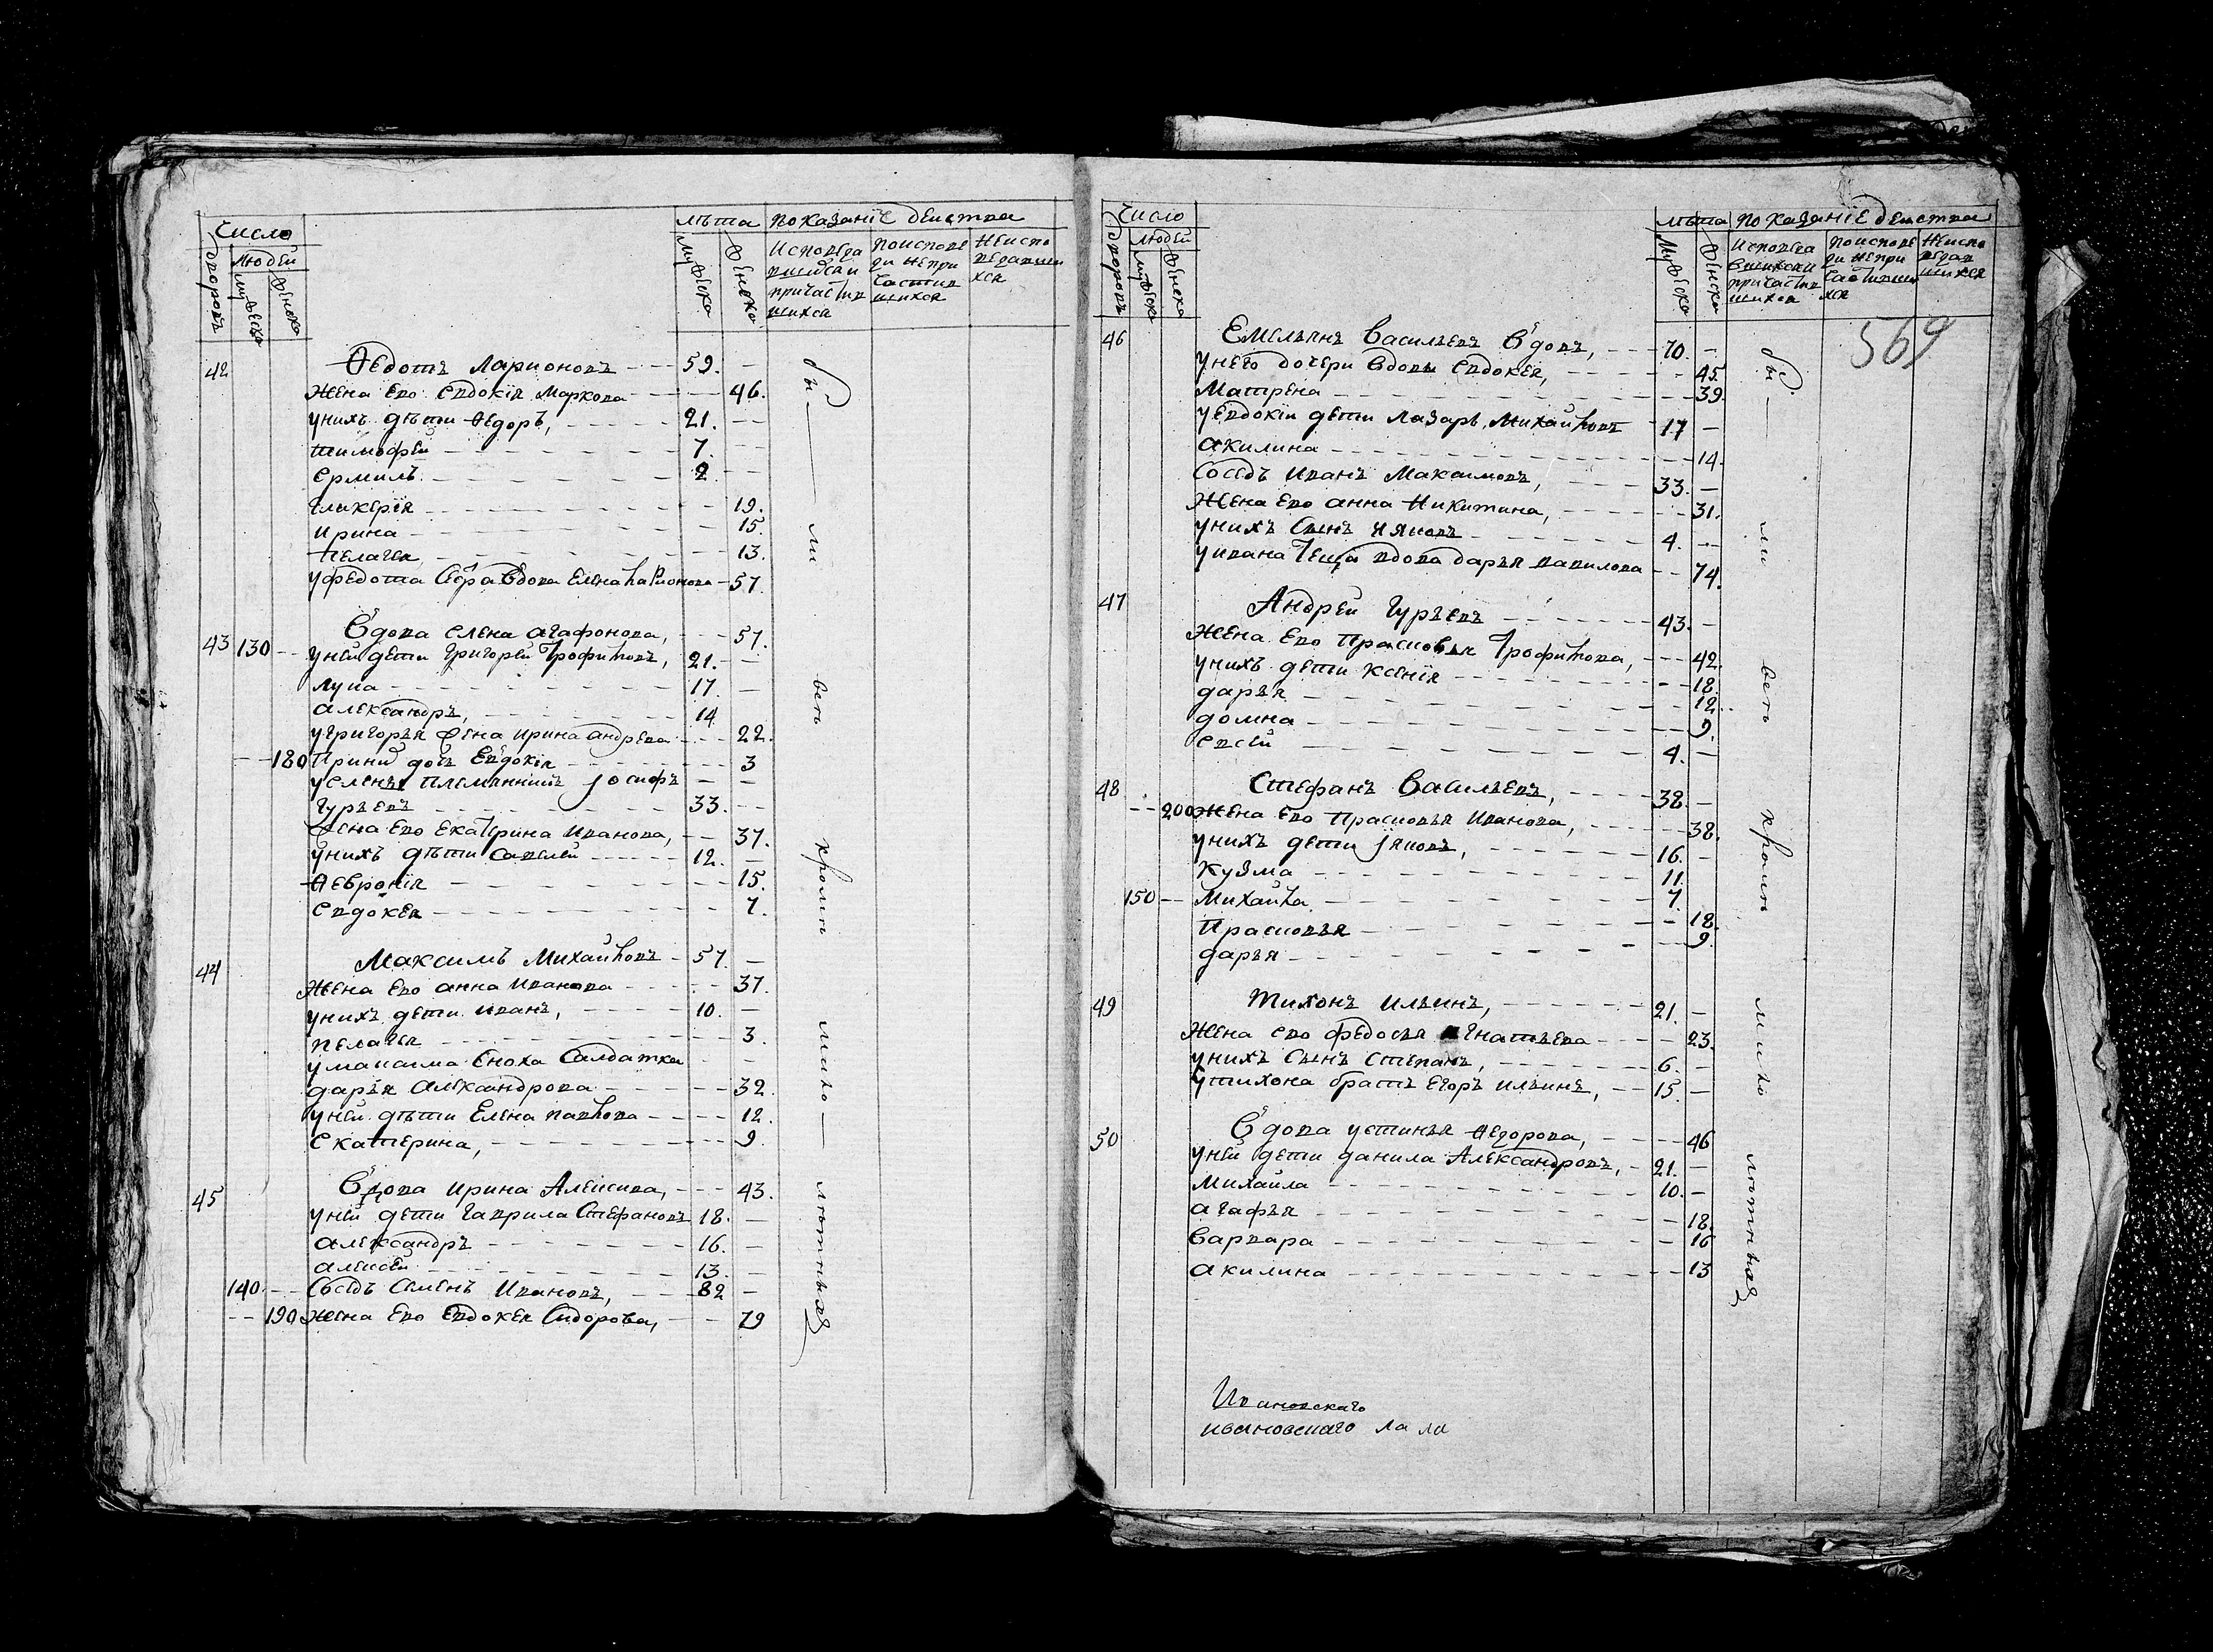 Число
лѣта показаніе деиства
дворовъ
людей
мужеска
женска
мужеска
женска
исповеда
вшихся и
причастив
шихся
поиспове
ди непри
частив
шихся
неиспо
ведавши
хся
42
Ѳедотъ Ларионовъ 59. —
жена ево Евдокія Маркова — 46.
унихъ дѣти Ѳедоръ, 21. —
тимофѣй 7. —
Ермилъ 2. —
гликерія 19.
ирина 15.
пелагея 13.
уфедота сестра вдова елена ларионова 57.
43 130 Вдова елена агафонова, 57.
уней дети григорей трофимовъ, 21. —
лупа 17. —
александръ, 14
угригорья жена ирина андреева 22.
180 Ирины дочь Евдокія 3
уелены племянникъ іосифъ — —
гурьевъ 33. —
жена ево екатерина иванова, 37.
унихъ дѣти савелей 12. —
Ѳевронія 15.
евдокея 7.
44
Максимъ Михайловъ 57. —
жена ево анна иванова 37.
унихъ дети иванъ, 10. —
пелагея 3.
умаксима сноха салдатка — —
дарья александрова 32.
уней дѣти елена павлова 12.
екатерина, 9.
45
Вдова ирина Алексиева, 43.
уней дети гаврила Стефановъ 18. —
александръ 16. —
алексей 13. —
140 Соседъ Семенъ Ивановъ, 82 —
190 жена ево Евдокея Сидорова, 79
бы — ли веть кромѣ мало — лѣтныхъ
Число
лѣта показаніе деиства
дворовъ
людей
мужеска
женска
мужеска
женска
исповеда
вшихся и
причастив
шихся
поиспове
ди непри
частивши
хся
неиспо
ведав
шихся
569
46
Емельянъ Васильевъ вдовъ, 70. —
унего дочери вдовы Евдокея, 45.
Матрена 39.
уевдокіи дети лазарь Михайловъ 17 —
акилина 14.
Соседъ иванъ Максимовъ, 33. —
жена ево анна Никитина, 31.
унихъ сынъ 4. —
уивана теща вдова дарья вавилова 74.
47
Андрей гурьевъ 43. —
жена ево прасковья Трофимова, 42.
унихъ дети ксенія 18.
дарья 12.
домна 9.
евсей 4. —
48
Стефанъ Васильевъ, 38. —
200 жена ево прасковья иванова, 38.
унихъ дети іяковъ, 16. —
кузма 11.
150 Михайла 7.
прасковья 18.
дарья 9.
49
Тихонъ ильинъ, 21. —
жена ево федосья игнатьева 23.
унихъ сынъ степанъ, 6. —
утихона братъ егоръ ильинъ, 15. —
50
Вдова устинья Ѳедорова, 46
уней дети данила Александровъ, 21. —
михайла 10. —
агафья 18.
варвара 16
акилина 13
бы — ли веть кромѣ мало лѣтныхъ
Ивановскаго
ивановскаго ла ла